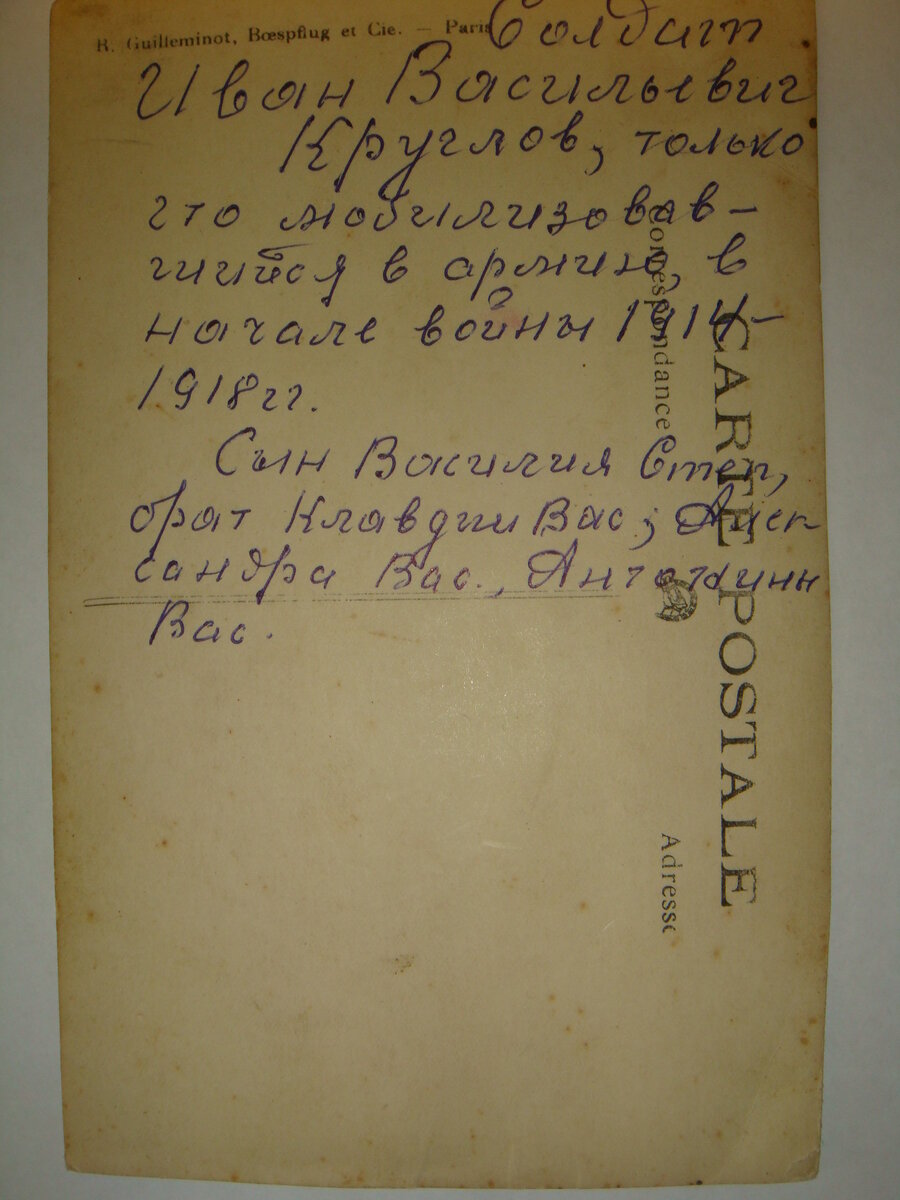 R. Guilleminot, Bœspflug et Cie. — Paris
Солдат
Иван Васильевич
Круглов, только
что мобилизовав-
шийся в армию, в
начале войны 1914-
1918гг.
Сын Василия Степ,
брат Клавдии Вас., Алек-
сандра Вас., Антонины
Вас.
CARTE POSTALE
Correspondance
Adresse